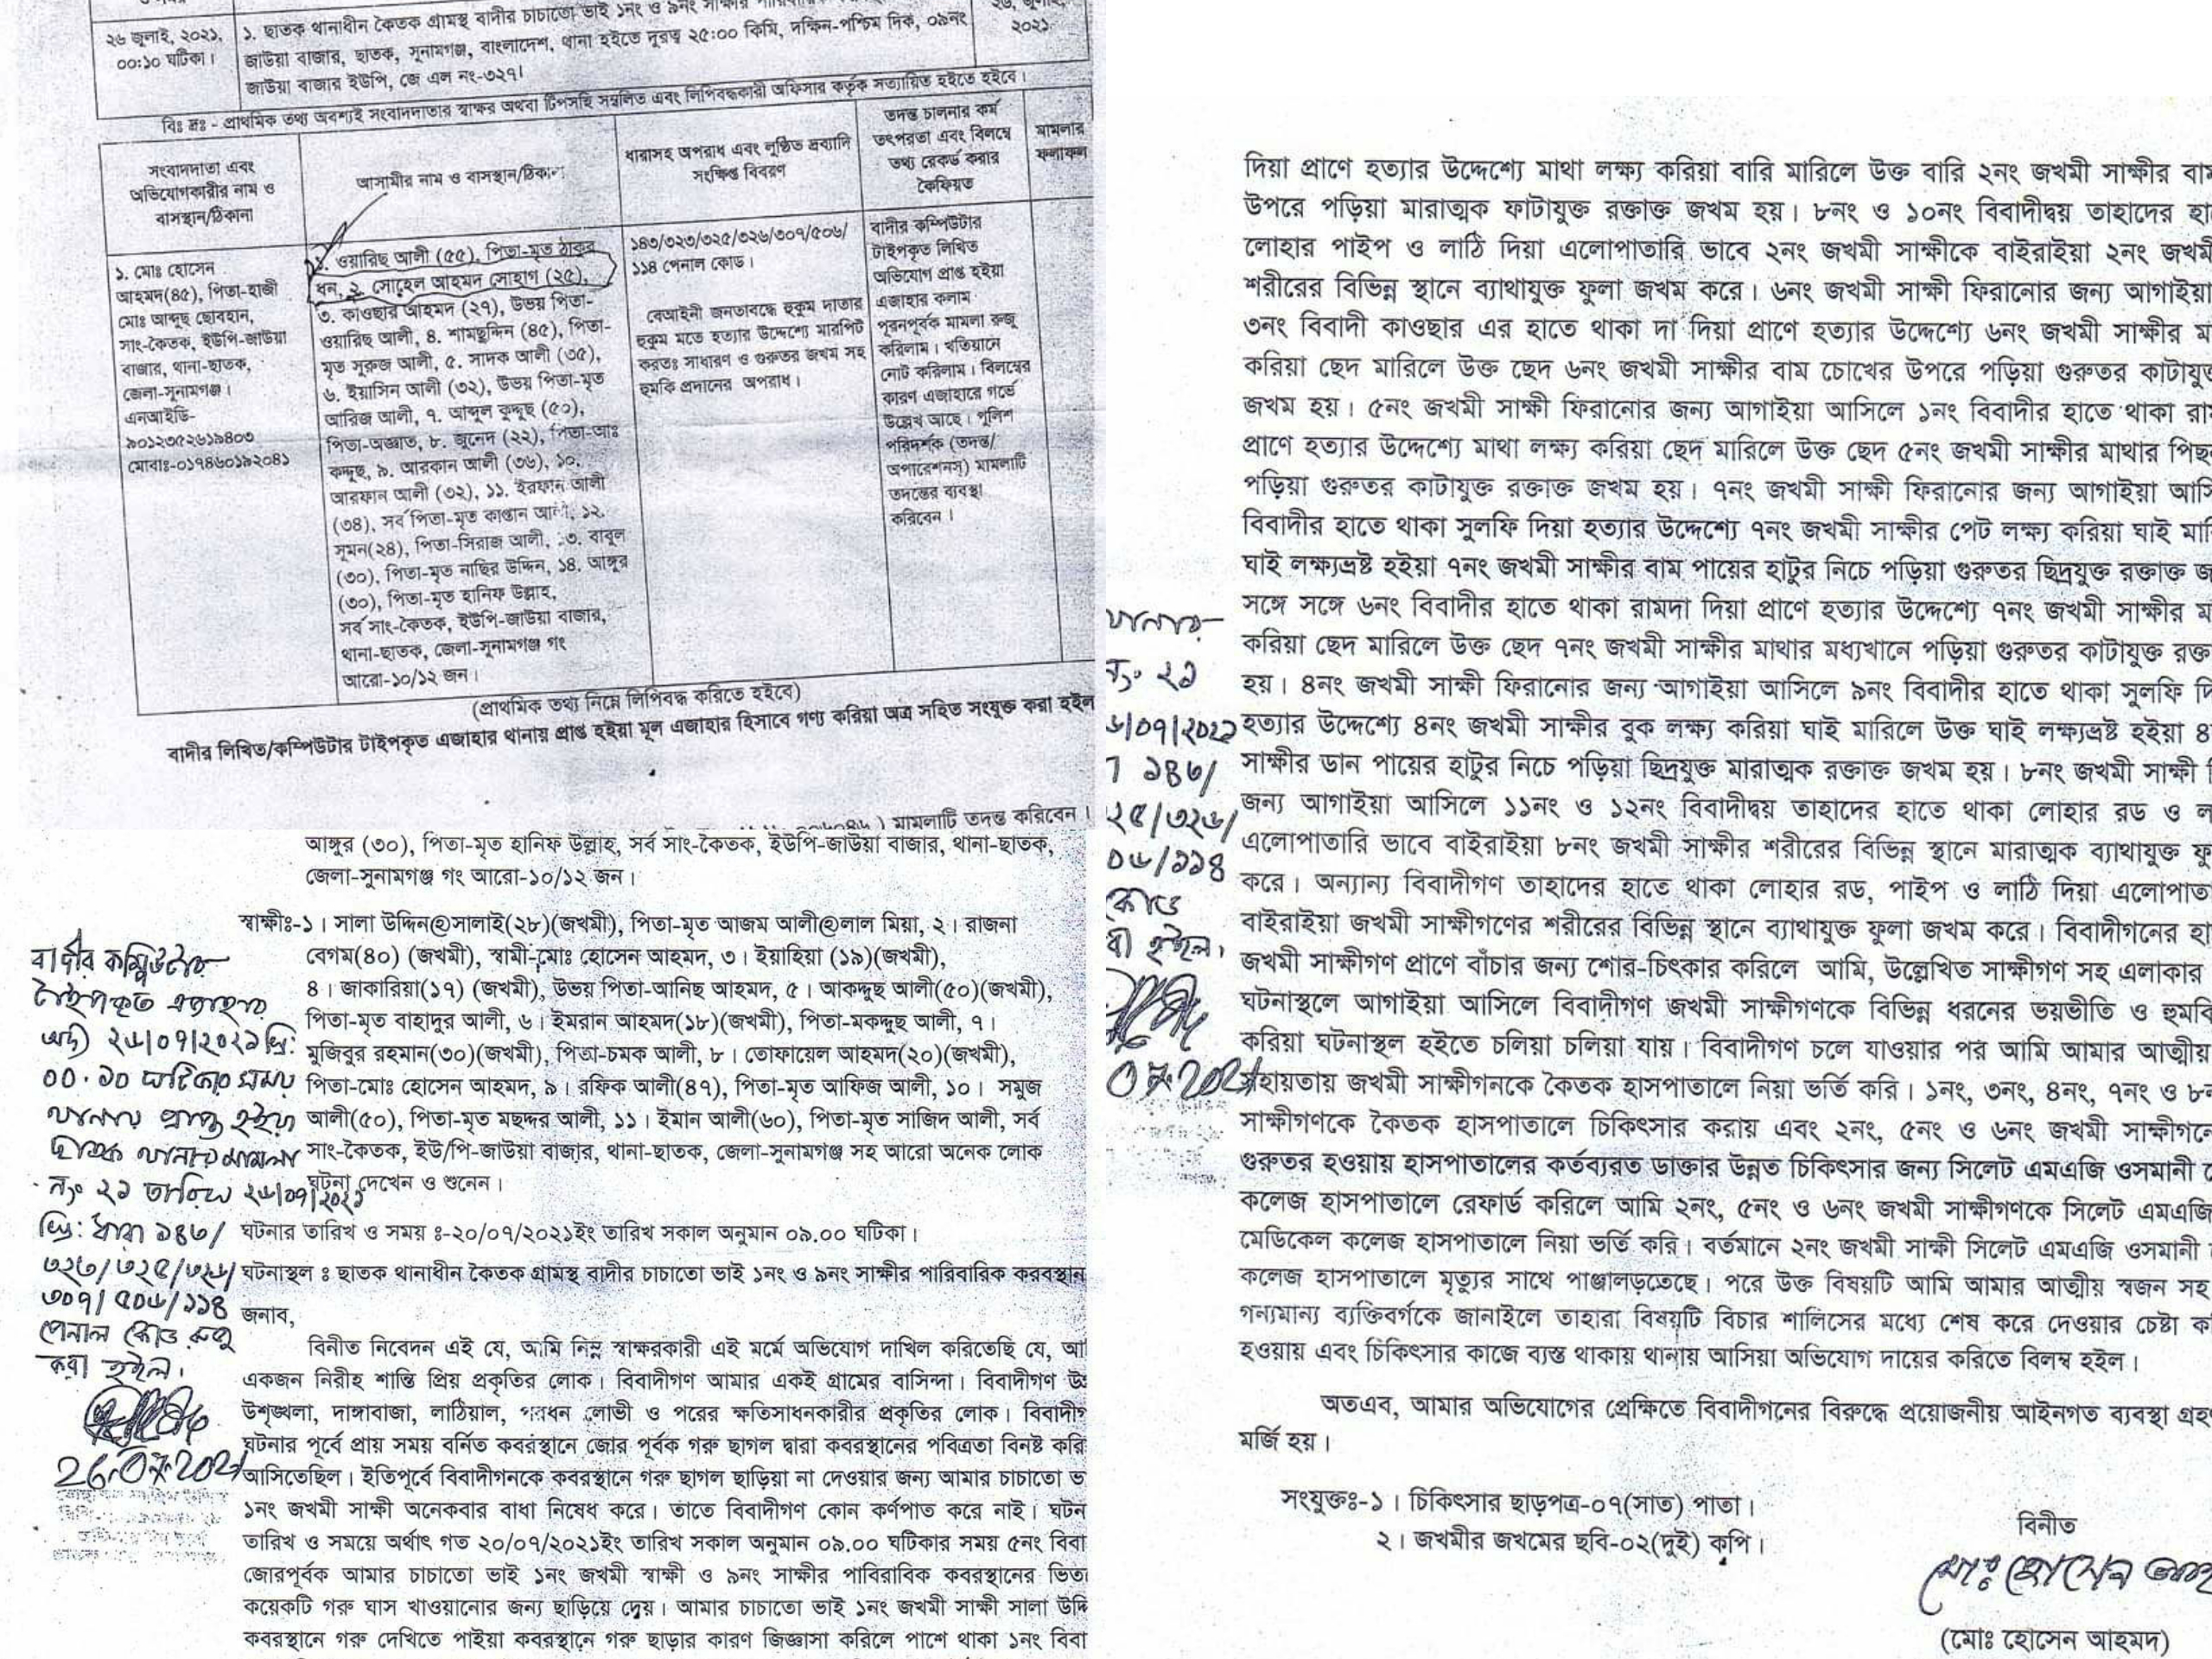 ২৬ জুলাই, ২০২১,
০০:১০ ঘটিকা।
১. ছাতক থানাধীন কৈতক গ্রামস্থ বাদীর চাচাতো ভাই ১নং ও ৯নং সাক্ষীর
জাউয়া বাজার, ছাতক, সুনামগঞ্জ, বাংলাদেশ, থানা হইতে দূরত্ব ২৫:০০ কিমি, দক্ষিন-পশ্চিম দিক, ০৯নং
জাউয়া বাজার ইউপি, জে এল নং-৩২৭।
২০২১
বিঃ দ্রঃ - প্রাথমিক তথ্য অবশ্যই সংবাদদাতার স্বাক্ষর অথবা টিপসহি সম্বলিত এবং লিপিবদ্ধকারী অফিসার কর্তৃক সত্যায়িত হইতে হইবে।
সংবাদদাতা এবং
অভিযোগকারীর নাম ও
বাসস্থান/ঠিকানা
আসামীর নাম ও বাসস্থান/ঠিকানা
ধারাসহ অপরাধ এবং লুন্ঠিত দ্রব্যাদি
সংক্ষিপ্ত বিবরণ
তদন্ত চালনার কর্ম
তৎপরতা এবং বিলম্বে
তথ্য রেকর্ড করার
কৈফিয়ত
মামলার
ফলাফল
১. মোঃ হোসেন
আহমদ(৪৫), পিতা-হাজী
মোঃ আব্দুছ ছোবহান,
সাং-কৈতক, ইউপি-জাউয়া
বাজার, থানা-ছাতক,
জেলা-সুনামগঞ্জ।
এনআইডি-
৯০১২৩৫২৬১৯৪০৩
মোবাঃ-০১৭৪৬০১৯২০৪১
১. ওয়ারিছ আলী (৫৫), পিতা-মৃত ঠাকুর
ধন, ২. সোহেল আহমদ সোহাগ (২৫),
৩. কাওছার আহমদ (২৭), উভয় পিতা-
ওয়ারিছ আলী, ৪. শামছুদ্দিন (৪৫), পিতা-
মৃত সুরুজ আলী, ৫. সাদক আলী (৩৫),
৬. ইয়াসিন আলী (৩২), উভয় পিতা-মৃত
আরিজ আলী, ৭. আব্দুল কুদ্দুছ (৫০),
পিতা-অজ্ঞাত, ৮. জুনেদ (২২), পিতা-আঃ
কদ্দুছ, ৯. আরকান আলী (৩৬), ১০.
আরফান আলী (৩২), ১১. ইরফান আলী
(৩৪), সর্ব পিতা-মৃত কাপ্তান আলী, ১২.
সুমন(২৪), পিতা-সিরাজ আলী, ১৩. বাবুল
(৩০), পিতা-মৃত নাছির উদ্দিন, ১৪. আঙ্গুর
(৩০), পিতা-মৃত হানিফ উল্লাহ,
সর্ব সাং-কৈতক, ইউপি-জাউয়া বাজার,
থানা-ছাতক, জেলা-সুনামগঞ্জ গং
আরো-১০/১২ জন।
১৪৩/৩২৩/৩২৫/৩২৬/৩০৭/৫০৬/
১১৪ পেনাল কোড।
বেআইনী জনতাবদ্ধে হুকুম দাতার
হুকুম মতে হত্যার উদ্দেশ্যে মারপিট
করতঃ সাধারণ ও গুরুতর জখম সহ
হুমকি প্রদানের অপরাধ।
বাদীর কম্পিউটার
টাইপকৃত লিখিত
অভিযোগ প্রাপ্ত হইয়া
এজাহার কলাম
পূরনপূর্বক মামলা রুজু
করিলাম। খতিয়ানে
নোট করিলাম। বিলম্বের
কারণ এজাহারে গর্ভে
উল্লেখ আছে। পুলিশ
পরিদর্শক (তদন্ত/
অপারেশনস্) মামলাটি
তদন্তের ব্যবস্থা
করিবেন।
(প্রাথমিক তথ্য নিম্নে লিপিবদ্ধ করিতে হইবে)
বাদীর লিখিত/কম্পিউটার টাইপকৃত এজাহার থানায় প্রাপ্ত হইয়া মূল এজাহার হিসাবে গণ্য করিয়া অত্র সহিত সংযুক্ত করা হইল
) মামলাটি তদন্ত করিবেন।
আঙ্গুর (৩০), পিতা-মৃত হানিফ উল্লাহ, সর্ব সাং-কৈতক, ইউপি-জাউয়া বাজার, থানা-ছাতক,
জেলা-সুনামগঞ্জ গং আরো-১০/১২ জন।
স্বাক্ষীঃ-১। সালা উদ্দিন@সালাই(২৮)(জখমী), পিতা-মৃত আজম আলী@লাল মিয়া, ২। রাজনা
বেগম(৪০) (জখমী), স্বামী-মোঃ হোসেন আহমদ, ৩। ইয়াহিয়া (১৯)(জখমী),
৪। জাকারিয়া(১৭) (জখমী), উভয় পিতা-আনিছ আহমদ, ৫। আকদ্দুছ আলী(৫০)(জখমী),
পিতা-মৃত বাহাদুর আলী, ৬। ইমরান আহমদ(১৮)(জখমী), পিতা-মকদ্দুছ আলী, ৭।
মুজিবুর রহমান(৩০)(জখমী), পিতা-চমক আলী, ৮। তোফায়েল আহমদ(২০)(জখমী),
পিতা-মোঃ হোসেন আহমদ, ৯। রফিক আলী(৪৭), পিতা-মৃত আফিজ আলী, ১০। সমুজ
আলী(৫০), পিতা-মৃত মছদ্দর আলী, ১১। ইমান আলী(৬০), পিতা-মৃত সাজিদ আলী, সর্ব
সাং-কৈতক, ইউ/পি-জাউয়া বাজার, থানা-ছাতক, জেলা-সুনামগঞ্জ সহ আরো অনেক লোক
ঘটনা দেখেন ও শুনেন।
বাদীর কম্পিউটার
টাইপকৃত এজাহার
অদ্য ২৬/০৭/২০২১খ্রি:
০০.১০ ঘটিকার সময়
থানায় প্রাপ্ত হইয়া
ছাতক থানার মামলা
নং ২১ তারিখ ২৬/০৭/২০২১
খ্রি: ধারা ১৪৩/
৩২৩/৩২৫/৩২৬/
৩০৭/৫০৬/১১৪
পেনাল কোড রুজু
করা হইল।
26.07.2021
ঘটনার তারিখ ও সময় ঃ-২০/০৭/২০২১ইং তারিখ সকাল অনুমান ০৯.০০ ঘটিকা।
ঘটনাস্থল ঃ ছাতক থানাধীন কৈতক গ্রামস্থ বাদীর চাচাতো ভাই ১নং ও ৯নং সাক্ষীর পারিবারিক কবরস্থান
জনাব,
বিনীত নিবেদন এই যে, আমি নিম্ন স্বাক্ষরকারী এই মর্মে অভিযোগ দাখিল করিতেছি যে, আ
একজন নিরীহ শান্তি প্রিয় প্রকৃতির লোক। বিবাদীগণ আমার একই গ্রামের বাসিন্দা। বিবাদীগণ
উশৃঙ্খলা, দাঙ্গাবাজা, লাঠিয়াল, পরধন লোভী ও পরের ক্ষতিসাধনকারীর প্রকৃতির লোক। বিবাদীগ
ঘটনার পূর্বে প্রায় সময় বর্নিত কবরস্থানে জোর পূর্বক গরু ছাগল দ্বারা কবরস্থানের পবিত্রতা বিনষ্ট করি
আসিতেছিল। ইতিপূর্বে বিবাদীগনকে কবরস্থানে গরু ছাগল ছাড়িয়া না দেওয়ার জন্য আমার চাচাতো ভ
১নং জখমী সাক্ষী অনেকবার বাধা নিষেধ করে। তাতে বিবাদীগণ কোন কর্ণপাত করে নাই। ঘটন
তারিখ ও সময়ে অর্থাৎ গত ২০/০৭/২০২১ইং তারিখ সকাল অনুমান ০৯.০০ ঘটিকার সময় ৫নং বিবা
জোরপূর্বক আমার চাচাতো ভাই ১নং জখমী স্বাক্ষী ও ৯নং সাক্ষীর পাবিরাবিক কবরস্থানের ভিত
কয়েকটি গরু ঘাস খাওয়ানোর জন্য ছাড়িয়ে দেয়। আমার চাচাতো ভাই ১নং জখমী সাক্ষী সালা উদ্দি
কবরস্থানে গরু দেখিতে পাইয়া কবরস্থানে গরু ছাড়ার কারণ জিজ্ঞাসা করিলে পাশে থাকা ১নং বিবা
দিয়া প্রাণে হত্যার উদ্দেশ্যে মাথা লক্ষ্য করিয়া বারি মারিলে উক্ত বারি ২নং জখমী সাক্ষীর বাম
উপরে পড়িয়া মারাত্মক ফাটাযুক্ত রক্তাক্ত জখম হয়। ৮নং ও ১০নং বিবাদীদ্বয় তাহাদের হা
লোহার পাইপ ও লাঠি দিয়া এলোপাতারি ভাবে ২নং জখমী সাক্ষীকে বাইরাইয়া ২নং জখমী
শরীরের বিভিন্ন স্থানে ব্যাথাযুক্ত ফুলা জখম করে। ৬নং জখমী সাক্ষী ফিরানোর জন্য আগাইয়া
৩নং বিবাদী কাওছার এর হাতে থাকা দা দিয়া প্রাণে হত্যার উদ্দেশ্যে ৬নং জখমী সাক্ষীর ম
করিয়া ছেদ মারিলে উক্ত ছেদ ৬নং জখমী সাক্ষীর বাম চোখের উপরে পড়িয়া গুরুতর কাটাযুক্ত
জখম হয়। ৫নং জখমী সাক্ষী ফিরানোর জন্য আগাইয়া আসিলে ১নং বিবাদীর হাতে থাকা রাম
প্রাণে হত্যার উদ্দেশ্যে মাথা লক্ষ্য করিয়া ছেদ মারিলে উক্ত ছেদ ৫নং জখমী সাক্ষীর মাথার পিছ
পড়িয়া গুরুতর কাটাযুক্ত রক্তাক্ত জখম হয়। ৭নং জখমী সাক্ষী ফিরানোর জন্য আগাইয়া আসি
বিবাদীর হাতে থাকা সুলফি দিয়া হত্যার উদ্দেশ্যে ৭নং জখমী সাক্ষীর পেট লক্ষ্য করিয়া ঘাই মারি
ঘাই লক্ষ্যভ্রষ্ট হইয়া ৭নং জখমী সাক্ষীর বাম পায়ের হাটুর নিচে পড়িয়া গুরুতর ছিদ্রযুক্ত রক্তাক্ত জ
সঙ্গে সঙ্গে ৬নং বিবাদীর হাতে থাকা রামদা দিয়া প্রাণে হত্যার উদ্দেশ্যে ৭নং জখমী সাক্ষীর ম
করিয়া ছেদ মারিলে উক্ত ছেদ ৭নং জখমী সাক্ষীর মাথার মধ্যখানে পড়িয়া গুরুতর কাটাযুক্ত রক্ত
হয়। ৪নং জখমী সাক্ষী ফিরানোর জন্য আগাইয়া আসিলে ৯নং বিবাদীর হাতে থাকা সুলফি দি
হত্যার উদ্দেশ্যে ৪নং জখমী সাক্ষীর বুক লক্ষ্য করিয়া ঘাই মারিলে উক্ত ঘাই লক্ষ্যভ্রষ্ট হইয়া ৪
সাক্ষীর ডান পায়ের হাটুর নিচে পড়িয়া ছিদ্রযুক্ত মারাত্মক রক্তাক্ত জখম হয়। ৮নং জখমী সাক্ষী
জন্য আগাইয়া আসিলে ১১নং ও ১২নং বিবাদীদ্বয় তাহাদের হাতে থাকা লোহার রড ও ল
এলোপাতারি ভাবে বাইরাইয়া ৮নং জখমী সাক্ষীর শরীরের বিভিন্ন স্থানে মারাত্মক ব্যাথাযুক্ত ফু
করে। অন্যান্য বিবাদীগণ তাহাদের হাতে থাকা লোহার রড, পাইপ ও লাঠি দিয়া এলোপাত
বাইরাইয়া জখমী সাক্ষীগণের শরীরের বিভিন্ন স্থানে ব্যাথাযুক্ত ফুলা জখম করে। বিবাদীগনের হা
জখমী সাক্ষীগণ প্রাণে বাঁচার জন্য শোর-চিৎকার করিলে আমি, উল্লেখিত সাক্ষীগণ সহ এলাকার
ঘটনাস্থলে আগাইয়া আসিলে বিবাদীগণ জখমী সাক্ষীগণকে বিভিন্ন ধরনের ভয়ভীতি ও হুমকি
করিয়া ঘটনাস্থল হইতে চলিয়া চলিয়া যায়। বিবাদীগণ চলে যাওয়ার পর আমি আমার আত্মীয়
সহায়তায় জখমী সাক্ষীগনকে কৈতক হাসপাতালে নিয়া ভর্তি করি। ১নং, ৩নং, ৪নং, ৭নং ও ৮ন
সাক্ষীগণকে কৈতক হাসপাতালে চিকিৎসার করায় এবং ২নং, ৫নং ও ৬নং জখমী সাক্ষীগনে
গুরুতর হওয়ায় হাসপাতালের কর্তব্যরত ডাক্তার উন্নত চিকিৎসার জন্য সিলেট এমএজি ওসমানী মে
কলেজ হাসপাতালে রেফার্ড করিলে আমি ২নং, ৫নং ও ৬নং জখমী সাক্ষীগণকে সিলেট এমএজি
মেডিকেল কলেজ হাসপাতালে নিয়া ভর্তি করি। বর্তমানে ২নং জখমী সাক্ষী সিলেট এমএজি ওসমানী
কলেজ হাসপাতালে মৃত্যুর সাথে পাঞ্জালড়তেছে। পরে উক্ত বিষয়টি আমি আমার আত্মীয় স্বজন সহ
গন্যমান্য ব্যক্তিবর্গকে জানাইলে তাহারা বিষয়টি বিচার শালিসের মধ্যে শেষ করে দেওয়ার চেষ্টা ক
হওয়ায় এবং চিকিৎসার কাজে ব্যস্ত থাকায় থানায় আসিয়া অভিযোগ দায়ের করিতে বিলম্ব হইল।
থানার
নং ২১
৬/০৭/২০২১
১৪৩/
২৫/৩২৬/
০৬/১১৪
কোড
হইল।
07.2021
অতএব, আমার অভিযোগের প্রেক্ষিতে বিবাদীগনের বিরুদ্ধে প্রয়োজনীয় আইনগত ব্যবস্থা গ্রহ
মর্জি হয়।
সংযুক্তঃ-১। চিকিৎসার ছাড়পত্র-০৭(সাত) পাতা।
২। জখমীর জখমের ছবি-০২(দুই) কপি।
বিনীত
মোঃ হোসেন আহ
(মোঃ হোসেন আহমদ)